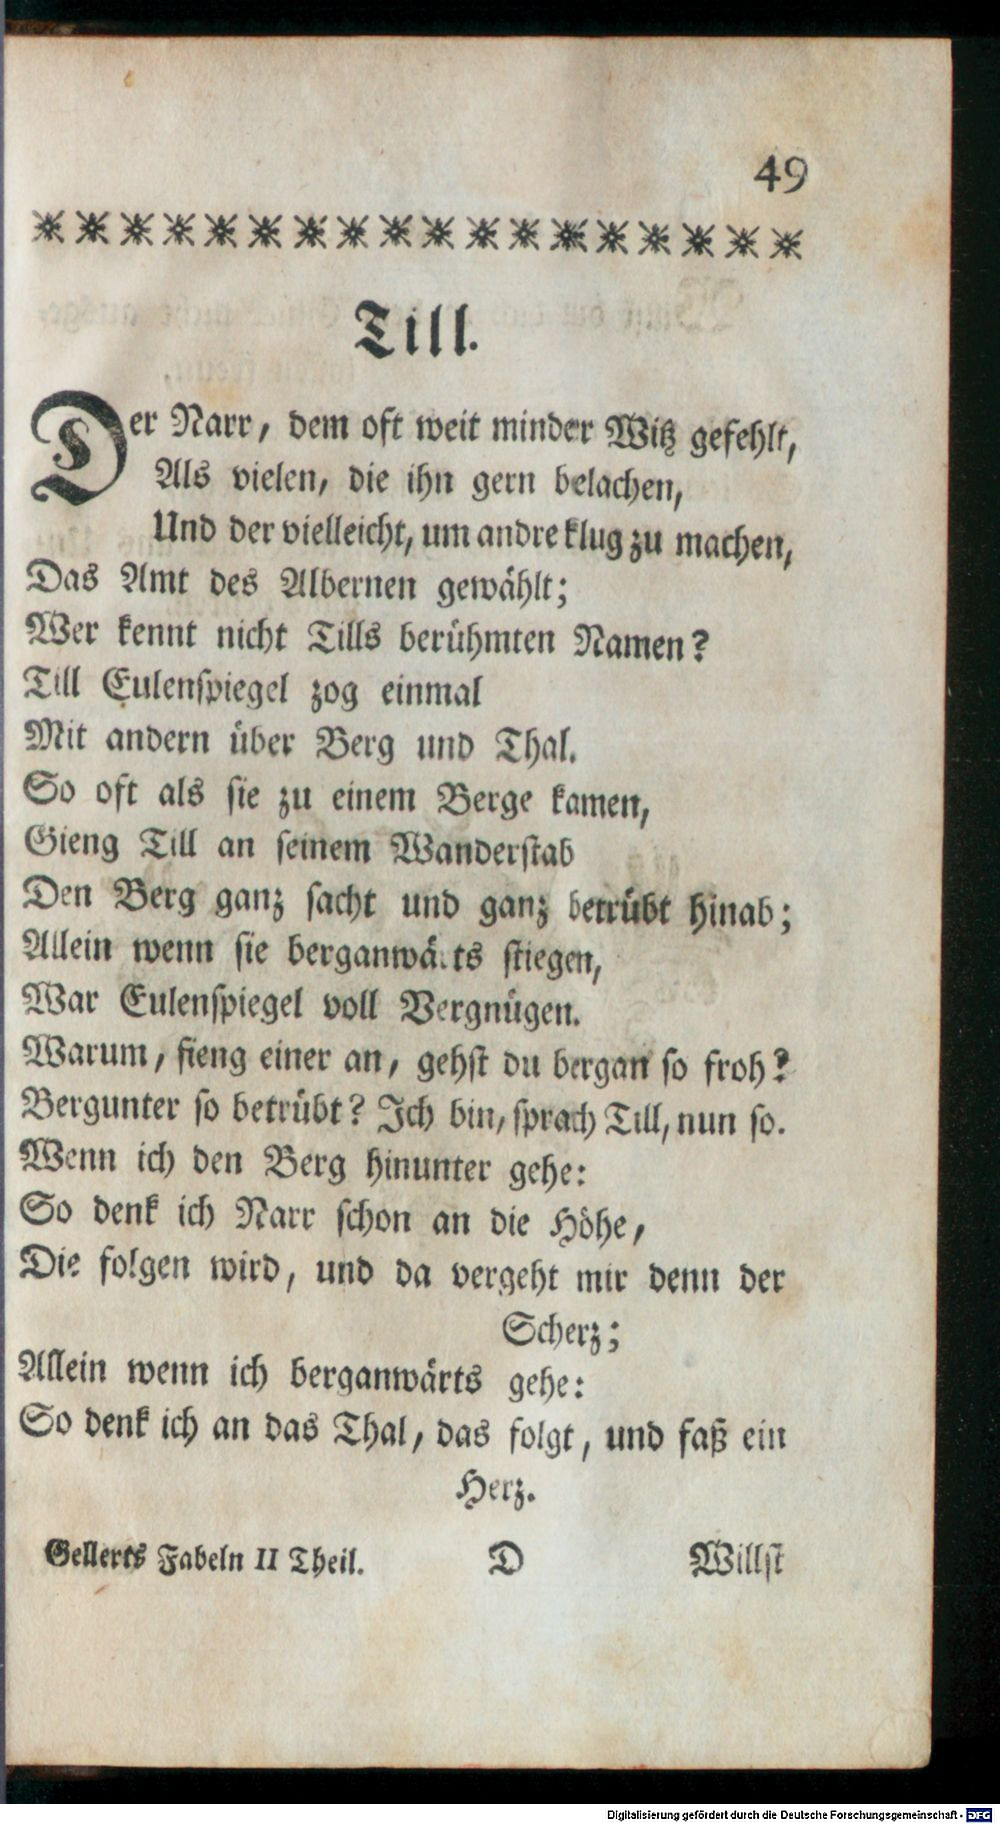 49
Till.
Der Narr, dem oft weit minder Witz gefehlt,
Als vielen, die ihn gern belachen,
Und der vielleicht, um andre klug zu machen,
Das Amt des Albernen gewählt;
Wer kennt nicht Tills berühmten Namen?
Till Eulenspiegel zog einmal
Mit andern über Berg und Thal.
So oft als sie zu einem Berge kamen,
Gieng Till an seinem Wanderstab
Den Berg ganz sacht und ganz betrübt hinab;
Allein wenn sie berganwärts stiegen,
War Eulenspiegel voll Vergnügen.
Warum, fieng einer an, gehst du bergan so froh?
Bergunter so betrübt? Ich bin, sprach Till, nun so.
Wenn ich den Berg hinunter gehe:
So denk ich Narr schon an die Höhe,
Die folgen wird, und da vergeht mir denn der
Scherz;
Allein wenn ich berganwärts gehe:
So denk ich an das Thal, das folgt, und faß ein
Herz.
Gellerts Fabeln II Theil. D Willst
Digitalisierung gefördert durch die Deutsche Forschungsgemeinschaft - DFG